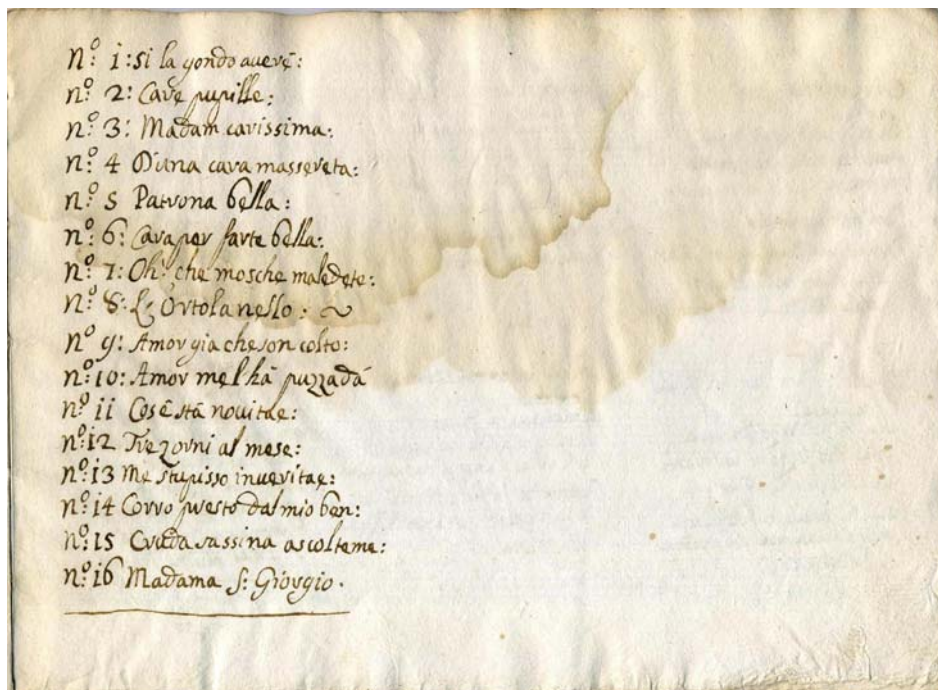 nº: 1: Si la gondo averè:
nº: 2: Care pupille:
nº: 3: Madam carissima:
nº: 4 Diana cara massereta:
nº: 5 Patrona bella:
nº: 6: Cara per farte bella:
nº: 7: Oh! che mosche maledete:
nº: 8: L'Ortolanello: ~
nº 9: Amor gia che son colto:
nº: 10: Amor me l'hà puzzadà
nº: 11 Cos'è stà novitae:
nº: 12 Tre zorni al mese:
nº: 13 Me stupisso in veritae:
nº: 14 Corro presto dal mio ben:
nº: 15 Cruda sassina ascolteme:
nº: 16 Madama S: Giorgio.